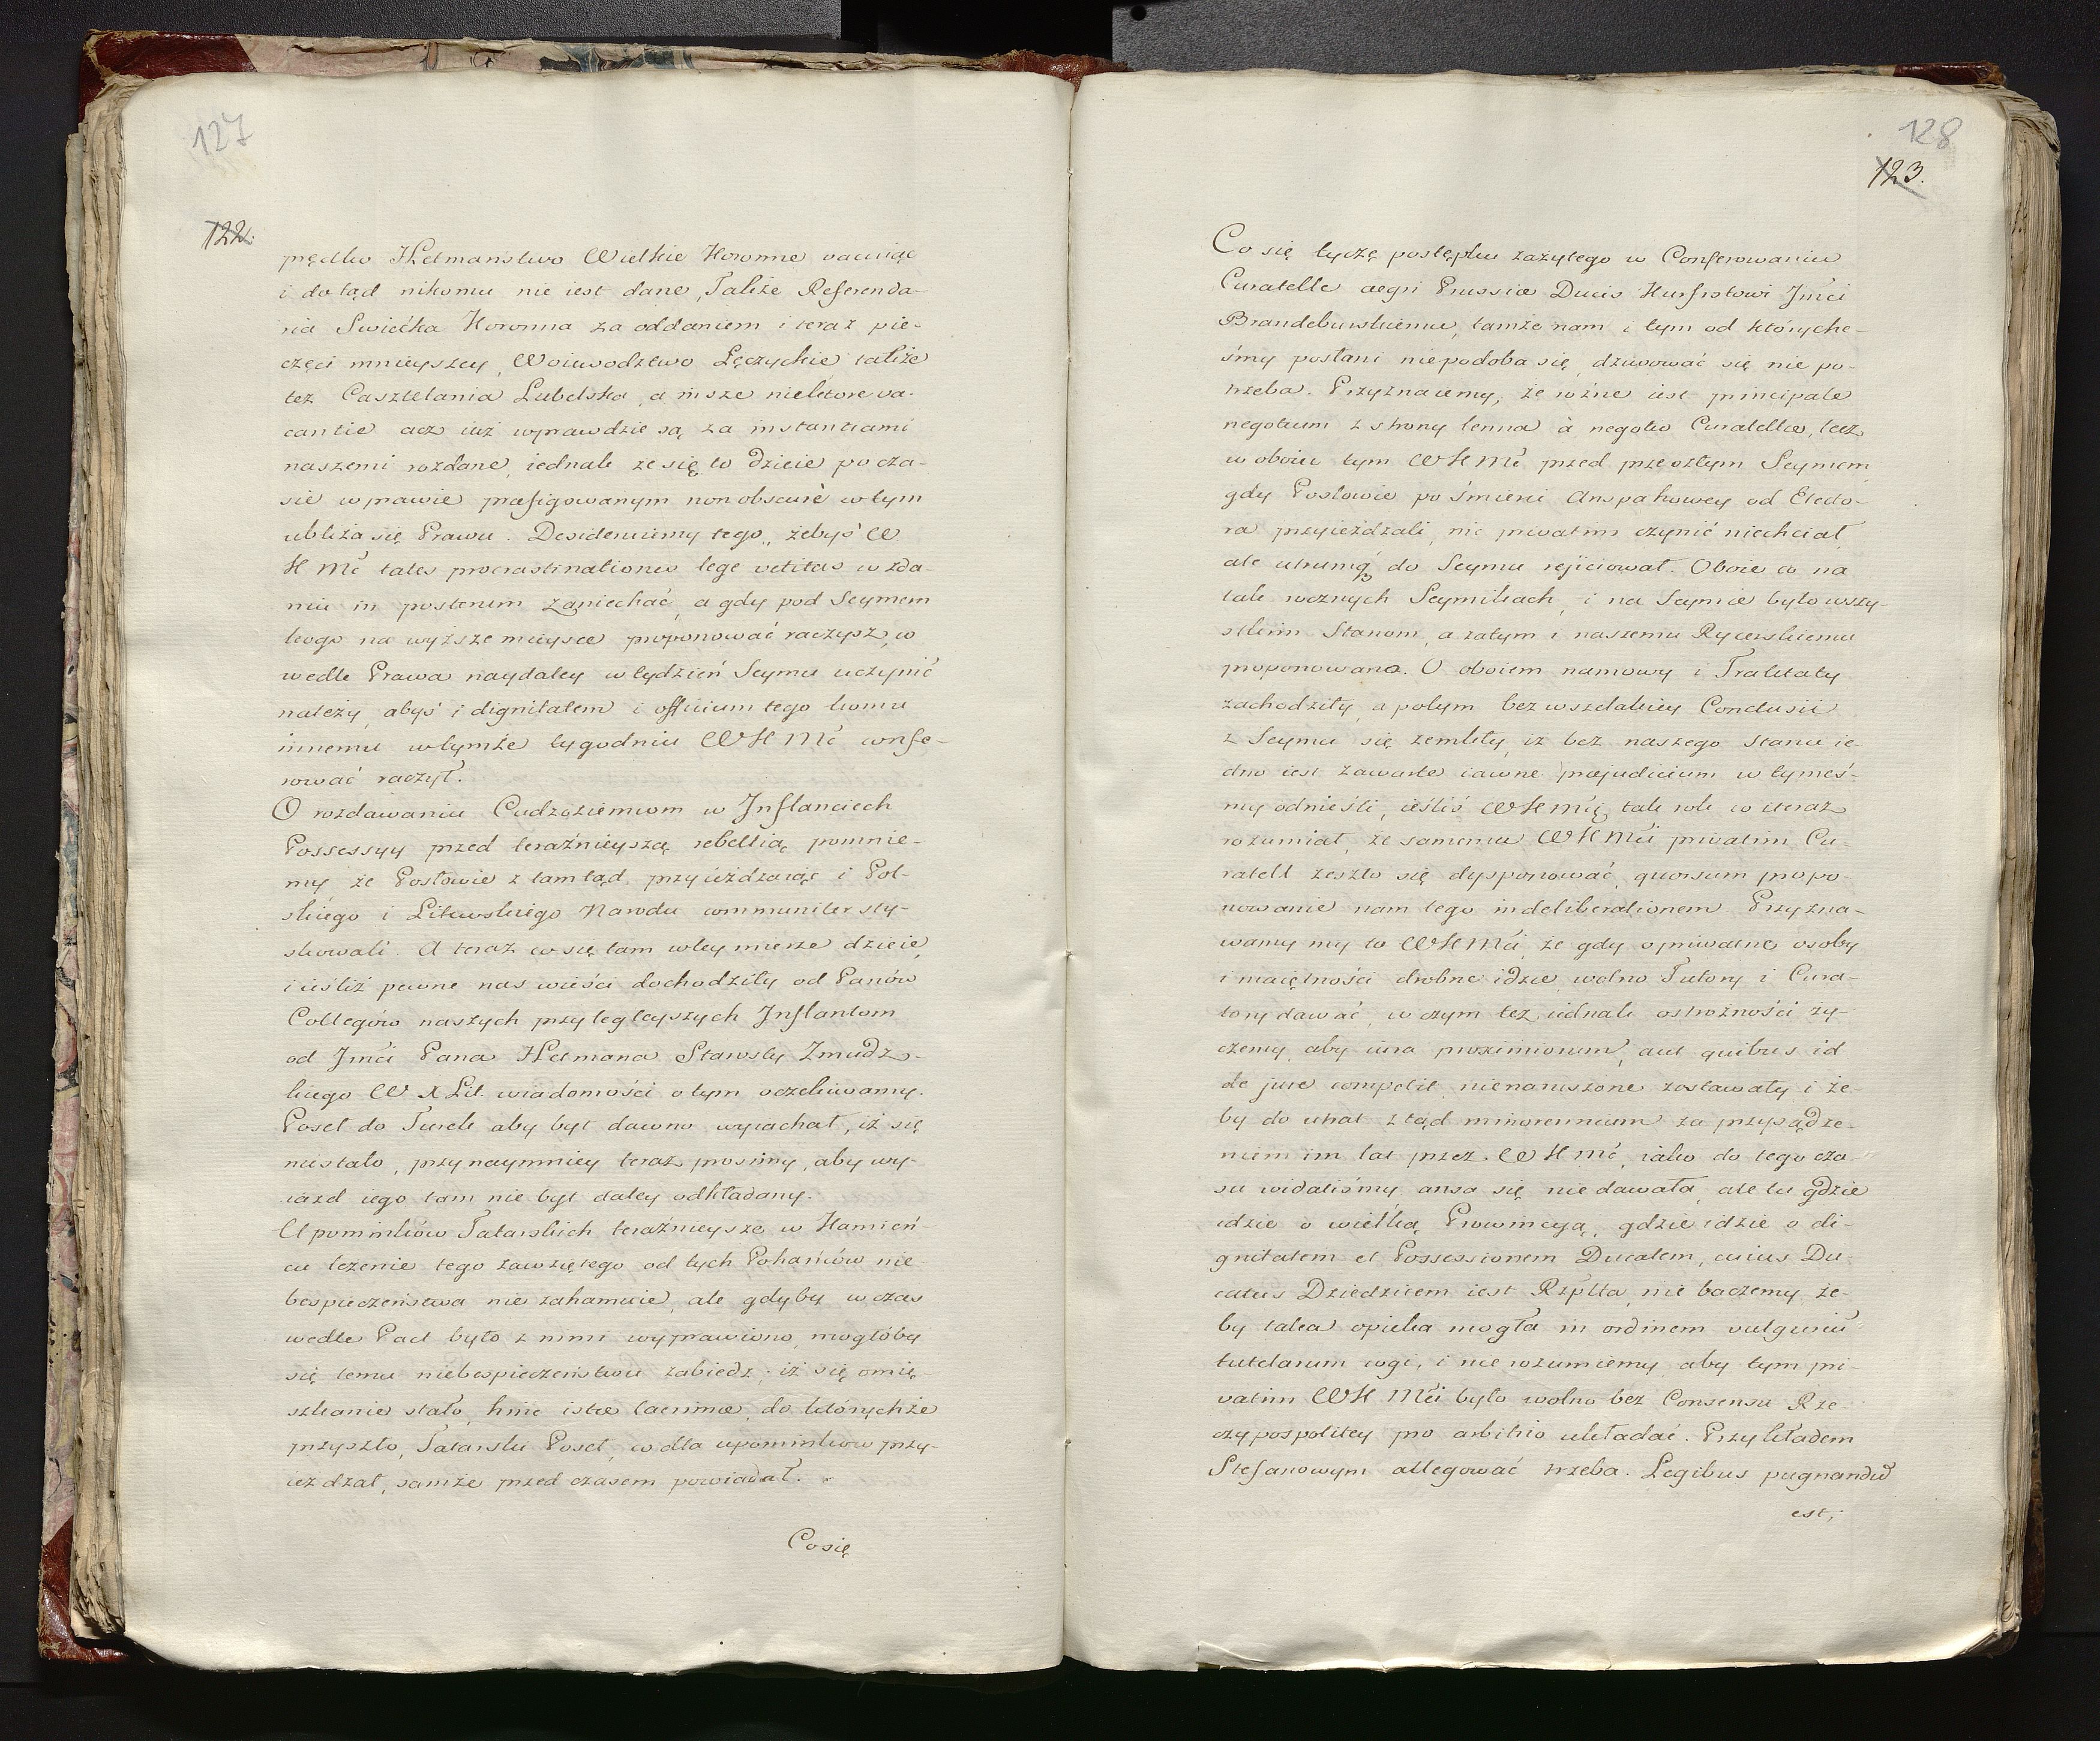 127
122.
prędko Hetmanstwo Wielkie Koronne vacuiąc
i dotąd nikomu nie iest dane, Także Referenda-
ria Swiecka Koronna za oddaniem i teraz pie-
częci mnieyszey, Woiewodztwo Łęczyckie także
tez Casztelania Lubelska, a insze niektore va-
cantie acz iuż wprawdzie są za instantiami
naszemi rozdane, iednak ze się to dzieie po cza-
sie w prawie praefigowanym non obscurè w tym
ubliża się Prawu. Desideruiemy tego, żebyś W
K Mć tales procrastinationes lege vetitas w zda-
niu in posterum zaniechać, a gdy pod Seymem
kogo na wyższe mieysce proponować raczysz, co
wedle Prawa naydaley w tydzień Seymu uczynić
należy, abyś i dignitatem i officium tego komu
innemu w tymże tygodniu WKMć confe-
rować raczył.
O rozdawaniu Cudzoziemcom w Jnflanciech
Possessyy przed teraźnieyszą rebellią pomnie-
my że Posłowie z tamtąd przyieżdzaiąc i Pol-
skiego i Litewskiego Narodu communiter sty-
skowali. A teraz co się tam w tey mierze dzieie,
i ieśliż pewne nas wieści dochodziły od Panów
Collegów naszych przylegleyszych Jnflantom
od Jmći Pana Hetmana Starosty Zmudz-
kiego W X Lit. wiadomości o tym oczekiwamy.
Poseł do Turek aby był dawno wyiachał, iż się
niestało, przynaymniey teraz prosimy, aby wy-
iazd iego tam nie był daley odkładany.
Upominków Tatarskich teraźnieysze w Kamień-
cu leżenie tego zawziętego od tych Pohańców nie
bespieczeństwa nie zahamuie, ale gdyby w czas
wedle Pact było z nimi wyprawiono, mogłoby
się temu niebespieczeństwu zabiedz, iż się omie-
szkanie stało, hinc istae lacrimae, do którychże
przyszło, Tatarski Poseł, co dla upominkow przy-
ieżdzał, samże przed czasem powiadał.
Co się
128
123.
Co się tyczę postępku zażytego w Conferowaniu
Curatelle aegri Prussiae Ducis Kurfrstowi Jmći
Brandeburskiemu, tamże nam i tym od któryche-
śmy posłani niepodoba się, dziwować się nie po-
trzeba. Przyznaiemy, że rożne iest principale
negotium z strony lenna à negotio Curatellae, lecz
w oboiu tym WKMć przed przeszłym Seymem
gdy Posłowie po śmierci Anspahowey od Electo-
ra przyieżdzali, nic privatim czynić niechciał,
ale utrumq3 do Seymu rejiciował. Oboie to na
tak rocznych Seymikach, i na Seymie było wszy-
stkim Stanom, a zatym i naszemu Rycerskiemu
proponowano. O oboiem namowy i Traktaty
zachodziły, a potym bez wszelakiey Conclusii
z Seymu się zemkły, iz bez naszego Stanu ie-
dno iest zawarte iawne praejudicium w tymeś-
my odnieśli, ieśliś WKMć tak rok co i teraz
rozumiał, że samemu WKMći privatim Cu-
ratell zeszło się dysponować, quorsum propo-
nowanie nam tego in deliberationem. Przyzna-
wamy my to WKMći, że gdy o priwatne osoby
i maiętności drobne idzie, wolno Tutory i Cura-
tory dawać, w czym tez iednak ostrożności ży-
czemy, aby iura proximiorum, aut quibus id
de jure competit, nienaruszone zostawały, i że-
by do utrat ztąd minorennium za przysądze-
niem im lat przez WKMć, iako do tego cza-
su widaliśmy ansa się nie dawała, ale tu gdzie
idzie o wielką Prowincyą, gdzie idzie o di-
gnitatem et Possessionem Ducalem, cuius Du-
catus Dziedzicem iest Rzplta, nie baczemy że-
by takca opieka mogła in ordinem vulgariũ
tutelarum cogi, i nie rozumiemy aby tym pri-
vatim WK Mći było wolno bez Consensu Rze-
czypospolitey pro arbitrio układać. Przykładem
Stefanowym allegować trzeba. Legibus pugnandũ
est,